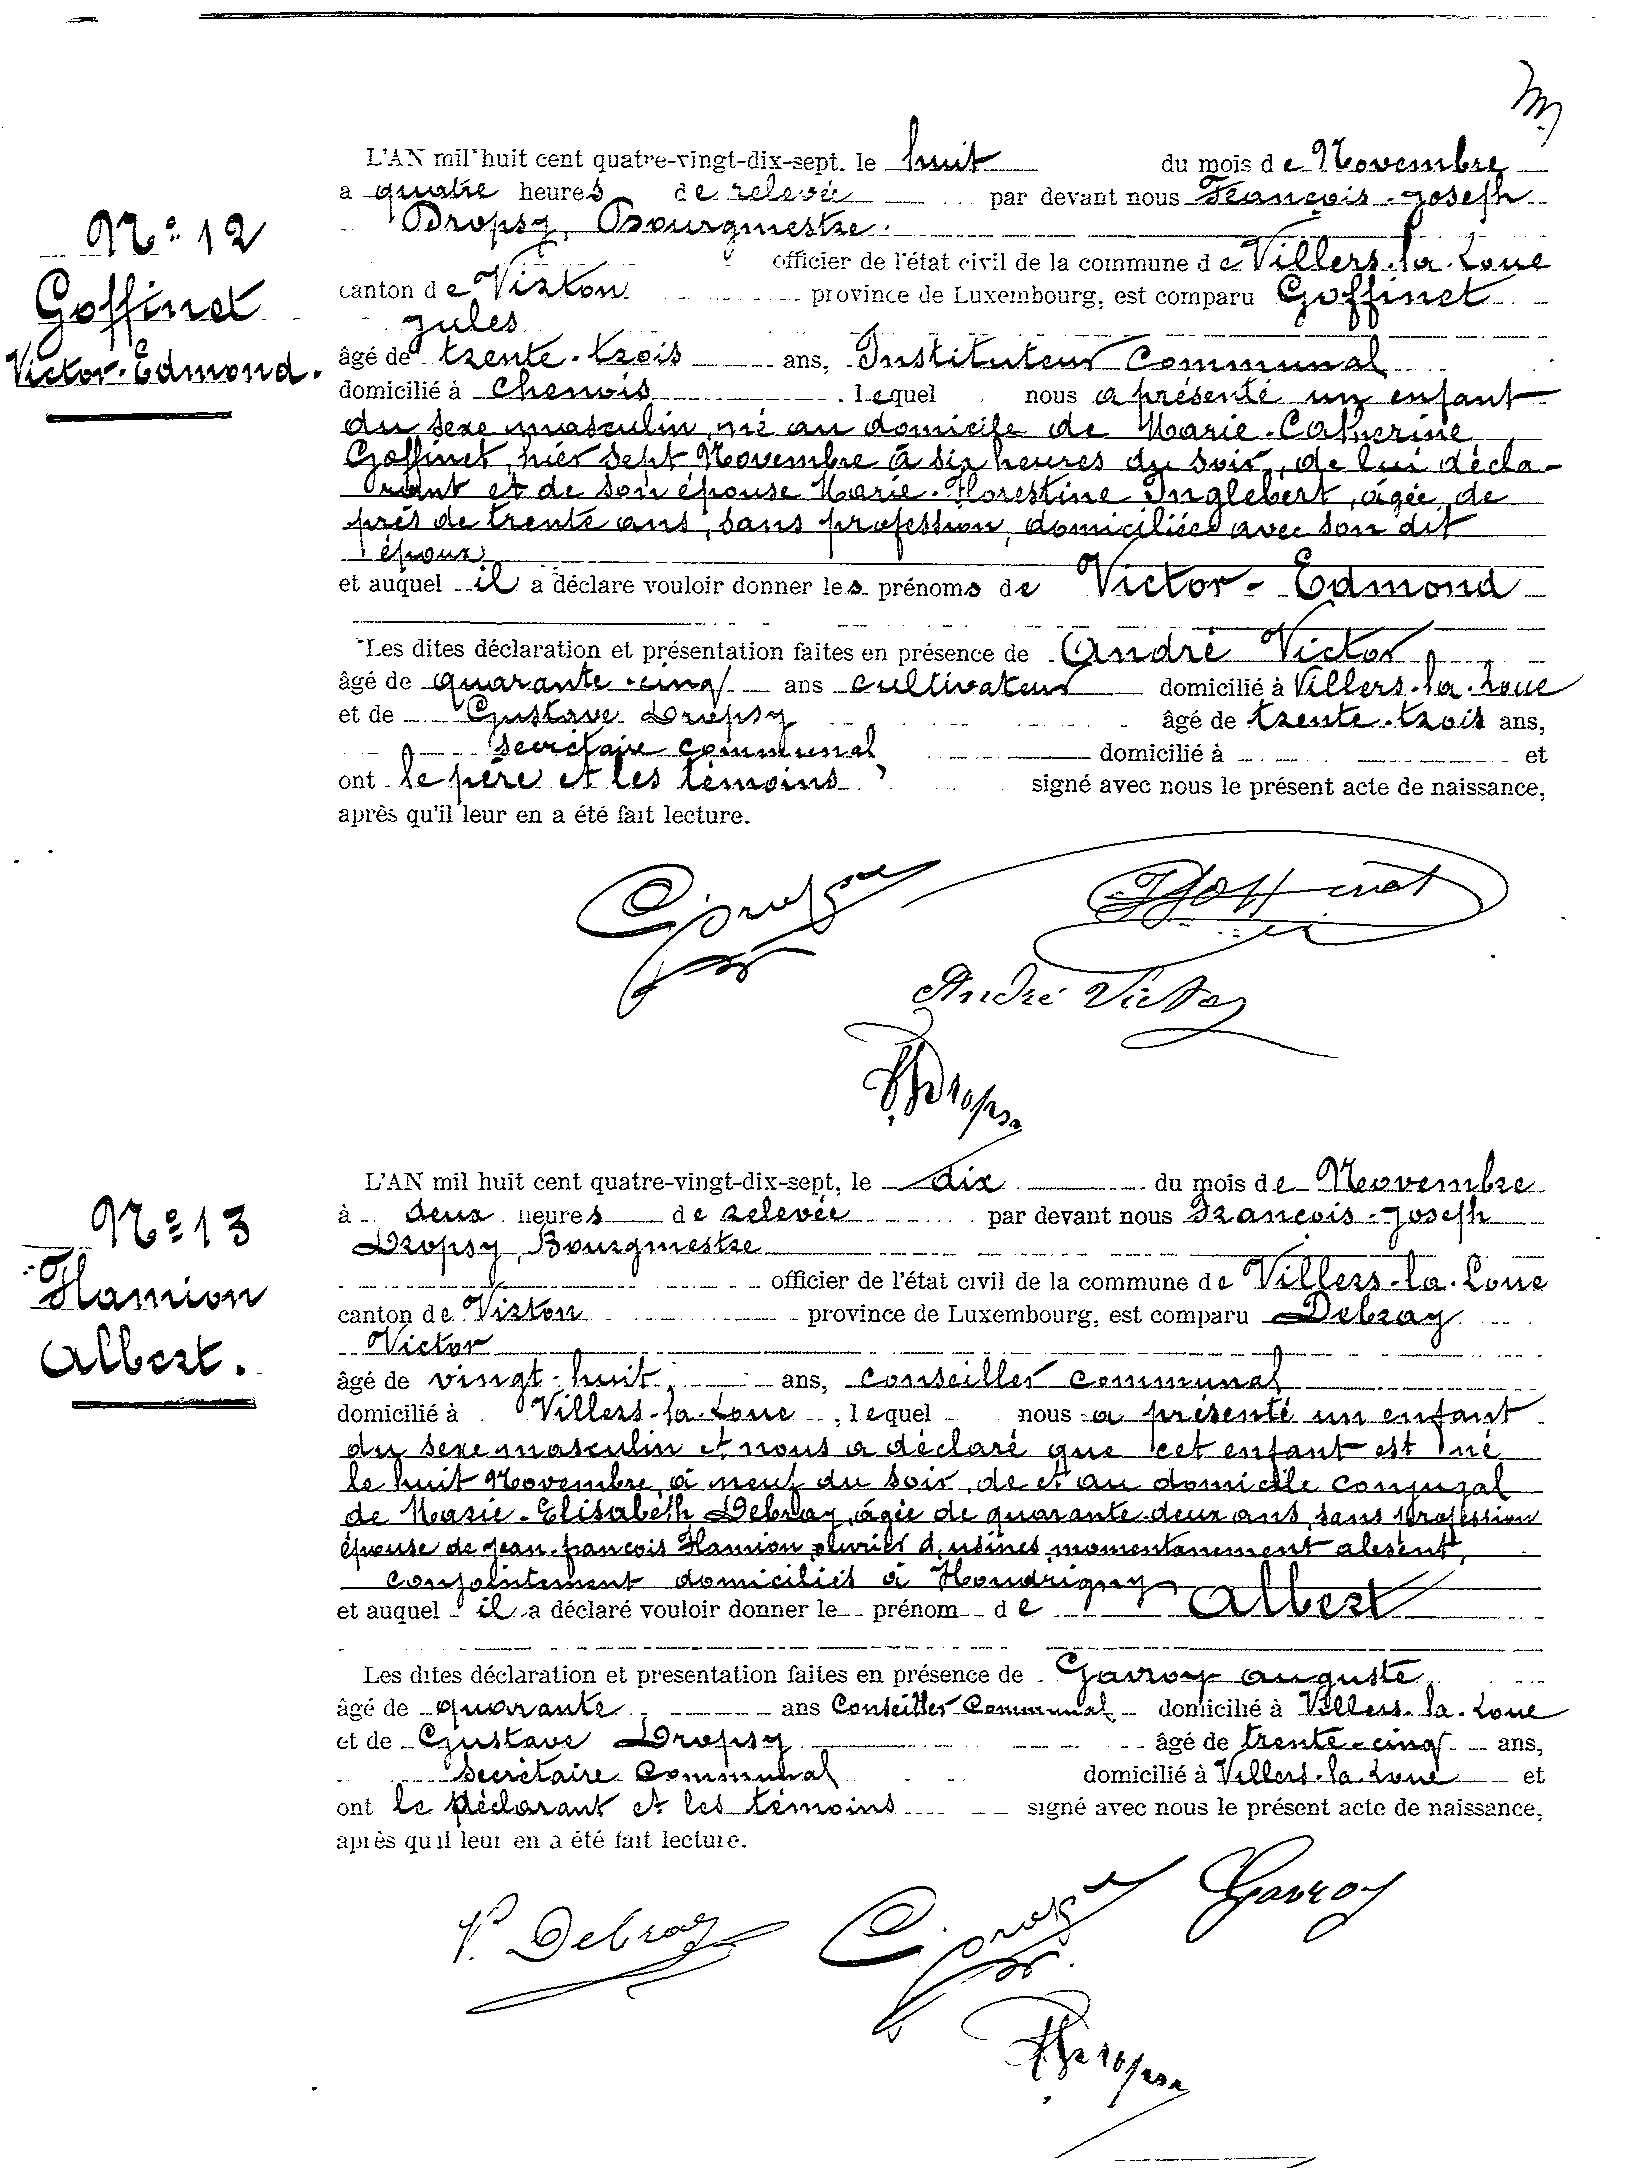 L'AN mil huit cent quatre-vingt-dix-sept, le huit du mois de Novembre
à quatre heures de relevée par devant nous François-Joseph
Dropsy, Bourgmestre
N° 12
officier de l'état civil de la commune de Villers-la-Loue
canton de Virton province de Luxembourg, est comparu Goffinet
Goffinet
Jules
Victor-Edmond.
âgé de trente-trois ans, Instituteur communal
domicilié à Chenois lequel nous a présenté un enfant
du sexe masculin, né au domicile de Marie-Catherine
Goffinet, hier sept Novembre à six heures du soir, de lui décla-
rant et de son épouse Marie-Florestine Inglebert, âgée de
près de trente ans, sans profession, domiciliée avec son dit
époux
et auquel il a déclaré vouloir donner les prénoms de Victor-Edmond
Les dites déclaration et présentation faites en présence de André Victor
âgé de quarante-cinq ans cultivateur domicilié à Villers-la-Loue
et de Gustave Dropsy âgé de trente-trois ans,
secrétaire communal domicilié à et
ont le père et les témoins signé avec nous le présent acte de naissance,
après qu'il leur en a été fait lecture.
G. Dropsy JGoffinet
André Victor
Dropsy
L'AN mil huit cent quatre-vingt-dix-sept, le dix du mois de Novembre
à deux heures de relevée par devant nous François-Joseph
Dropsy, Bourgmestre
N° 13
officier de l'état civil de la commune de Villers-la-Loue
Hamion
canton de Virton province de Luxembourg, est comparu Debray
Victor
Albert.
âgé de vingt-huit ans, conseiller communal
domicilié à Villers-la-Loue, lequel nous a présenté un enfant
du sexe masculin et nous a déclaré que cet enfant est né
le huit Novembre, à neuf du soir, de et au domicile conjugal
de Marie-Elisabeth Debray, âgée de quarante-deux ans, sans profession
épouse de Jean-françois Hamion, ouvrier d'usines, momentanement absent,
conjointement domiciliés à Houdrigny
et auquel il a déclaré vouloir donner le prénom de Albert
Les dites déclaration et présentation faites en présence de Gavroy auguste
âgé de quarante ans Conseiller Communal domicilié à Villers-la-Loue
et de Gustave Dropsy âgé de trente-cinq ans,
secrétaire Communal domicilié à Villers-la-Loue et
ont le déclarant et les témoins signé avec nous le présent acte de naissance,
après qu'il leur en a été fait lecture.
V. Debray G. Dropsy Gavroy
Dropsy